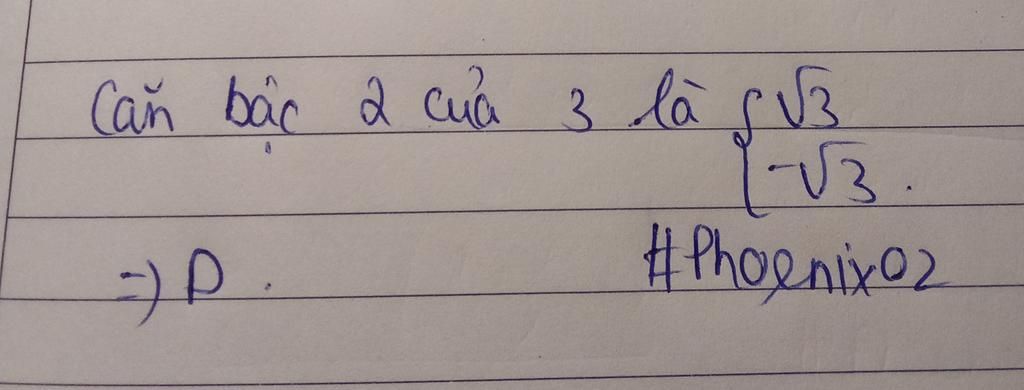 Căn bậc 2 của 3 là { √3
-√3 .
=) D . #Phoenix02